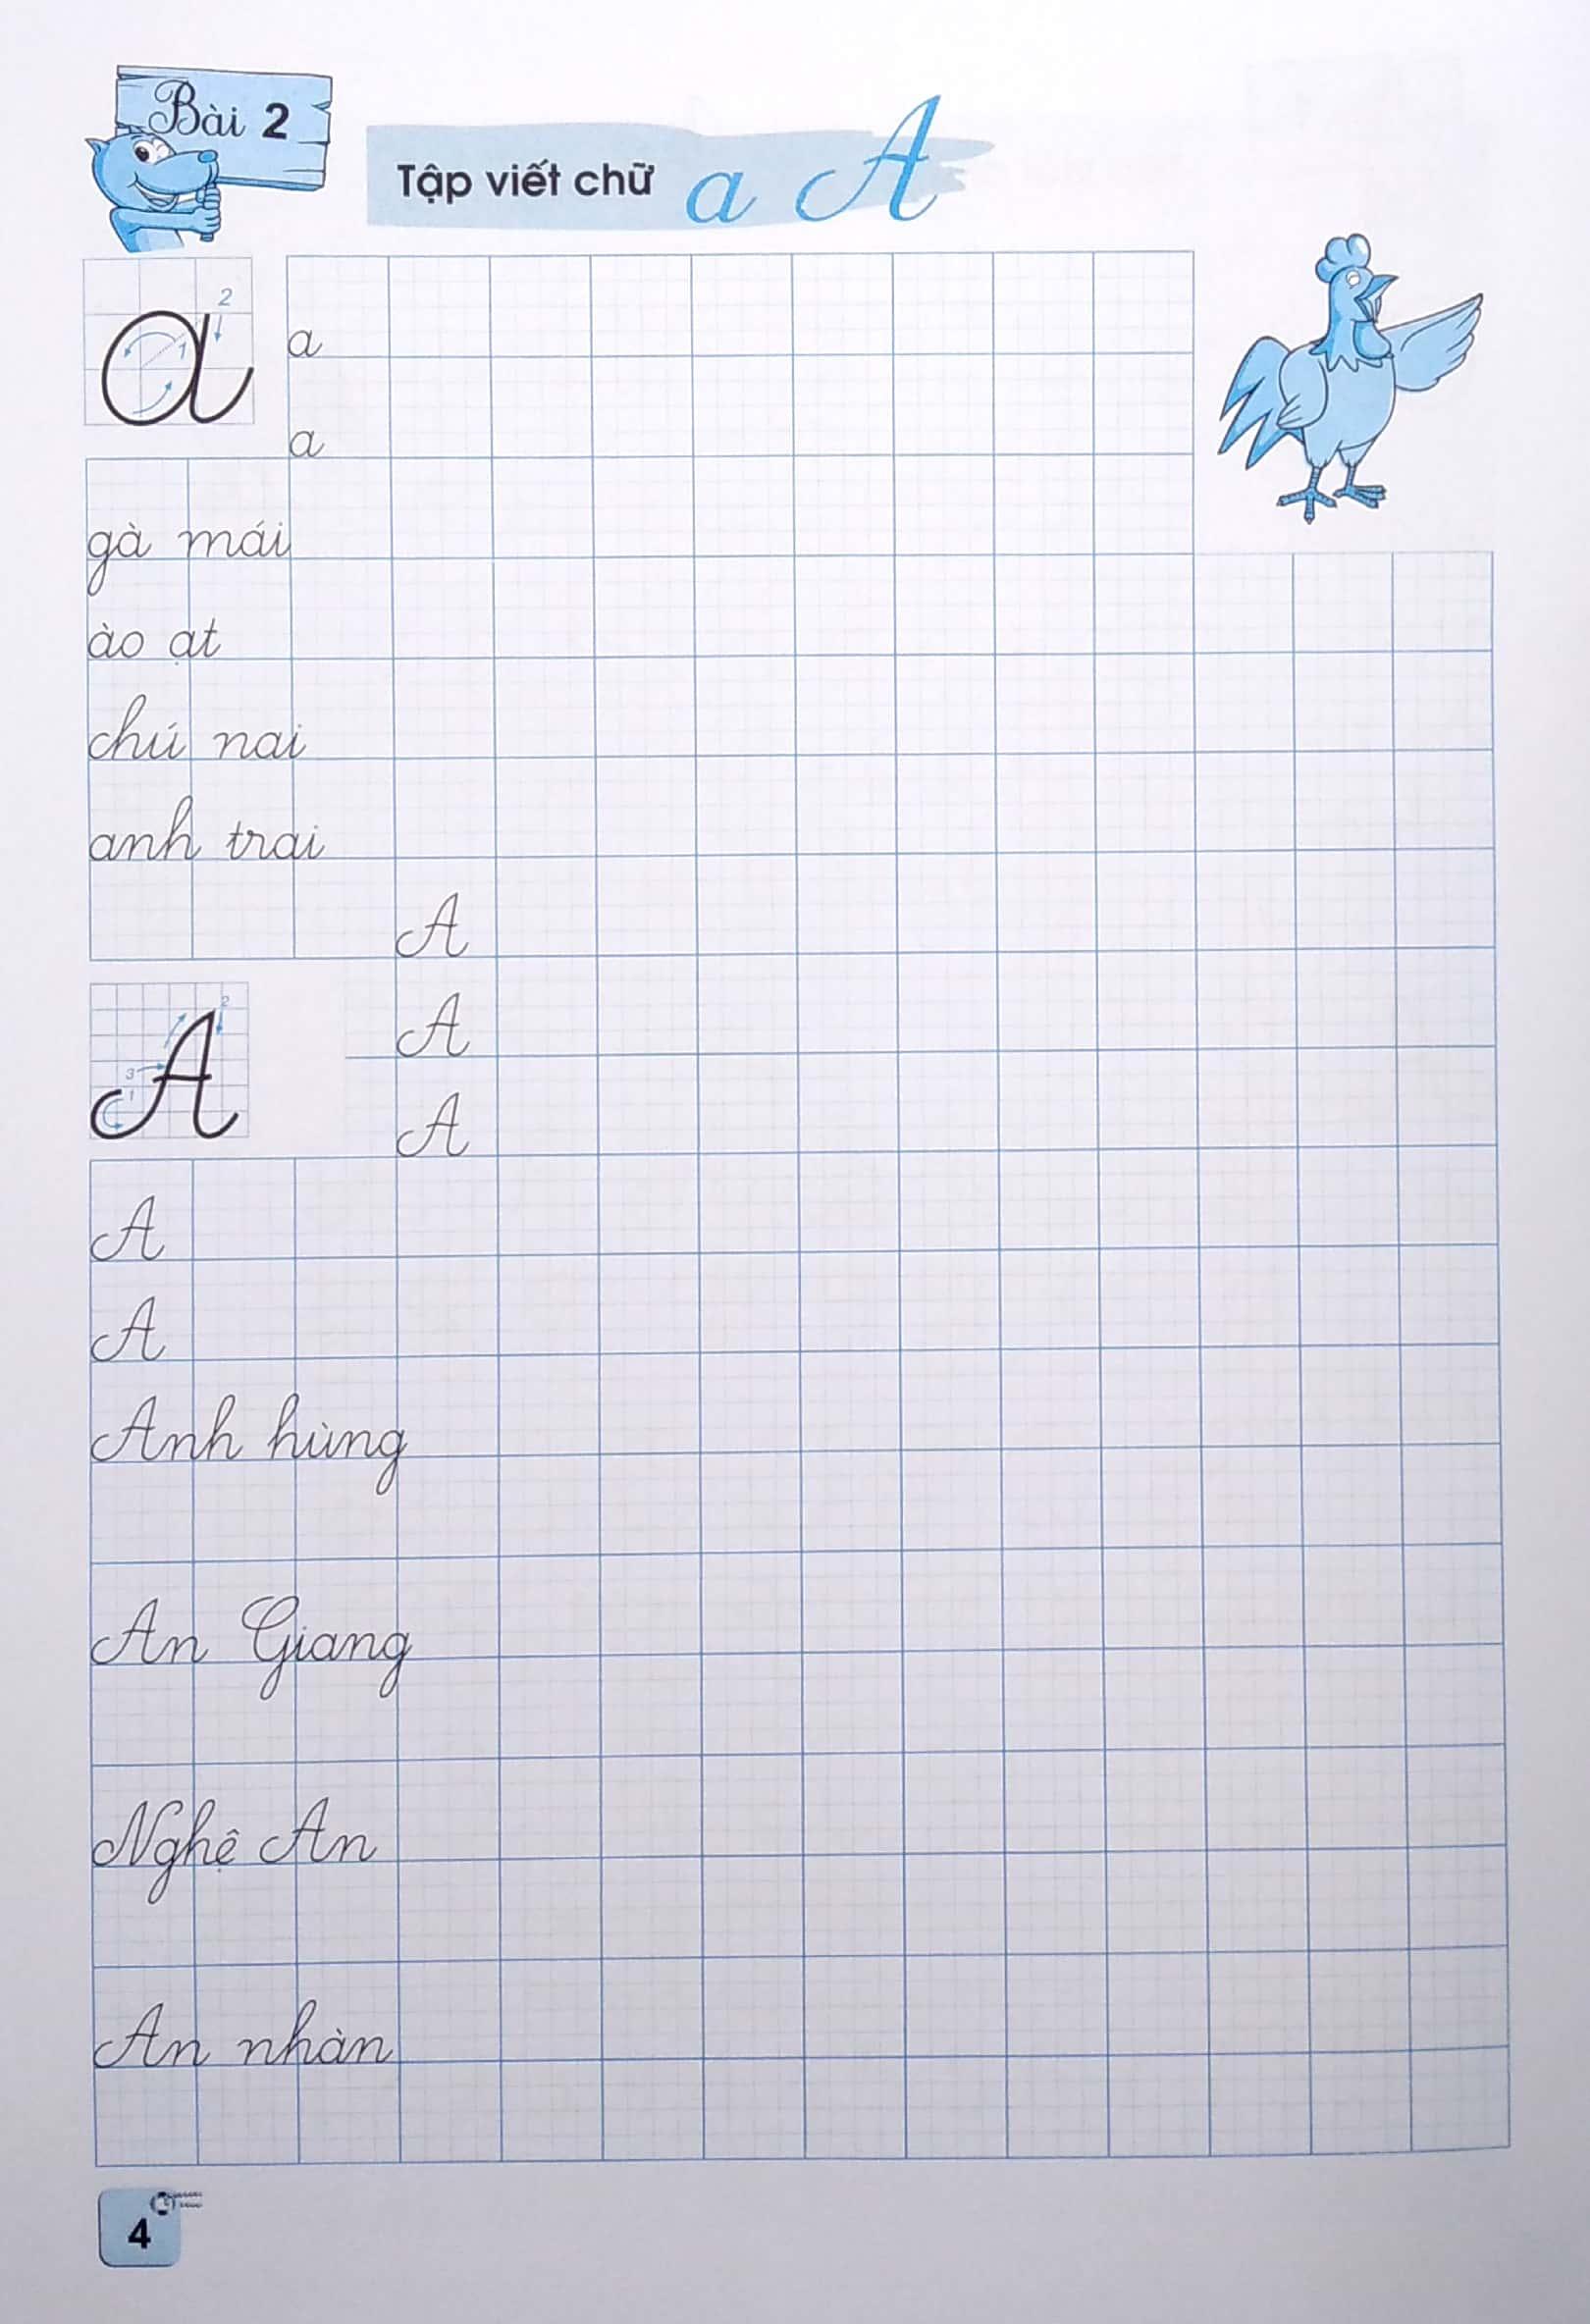 Bài 2
Tập viết chữ a A
2
1
a
a
gà mái
ào ạt
chú nai
anh trai
A
2
3
1
A
A
A
A
Anh hùng
An Giang
Nghệ An
An nhàn
4